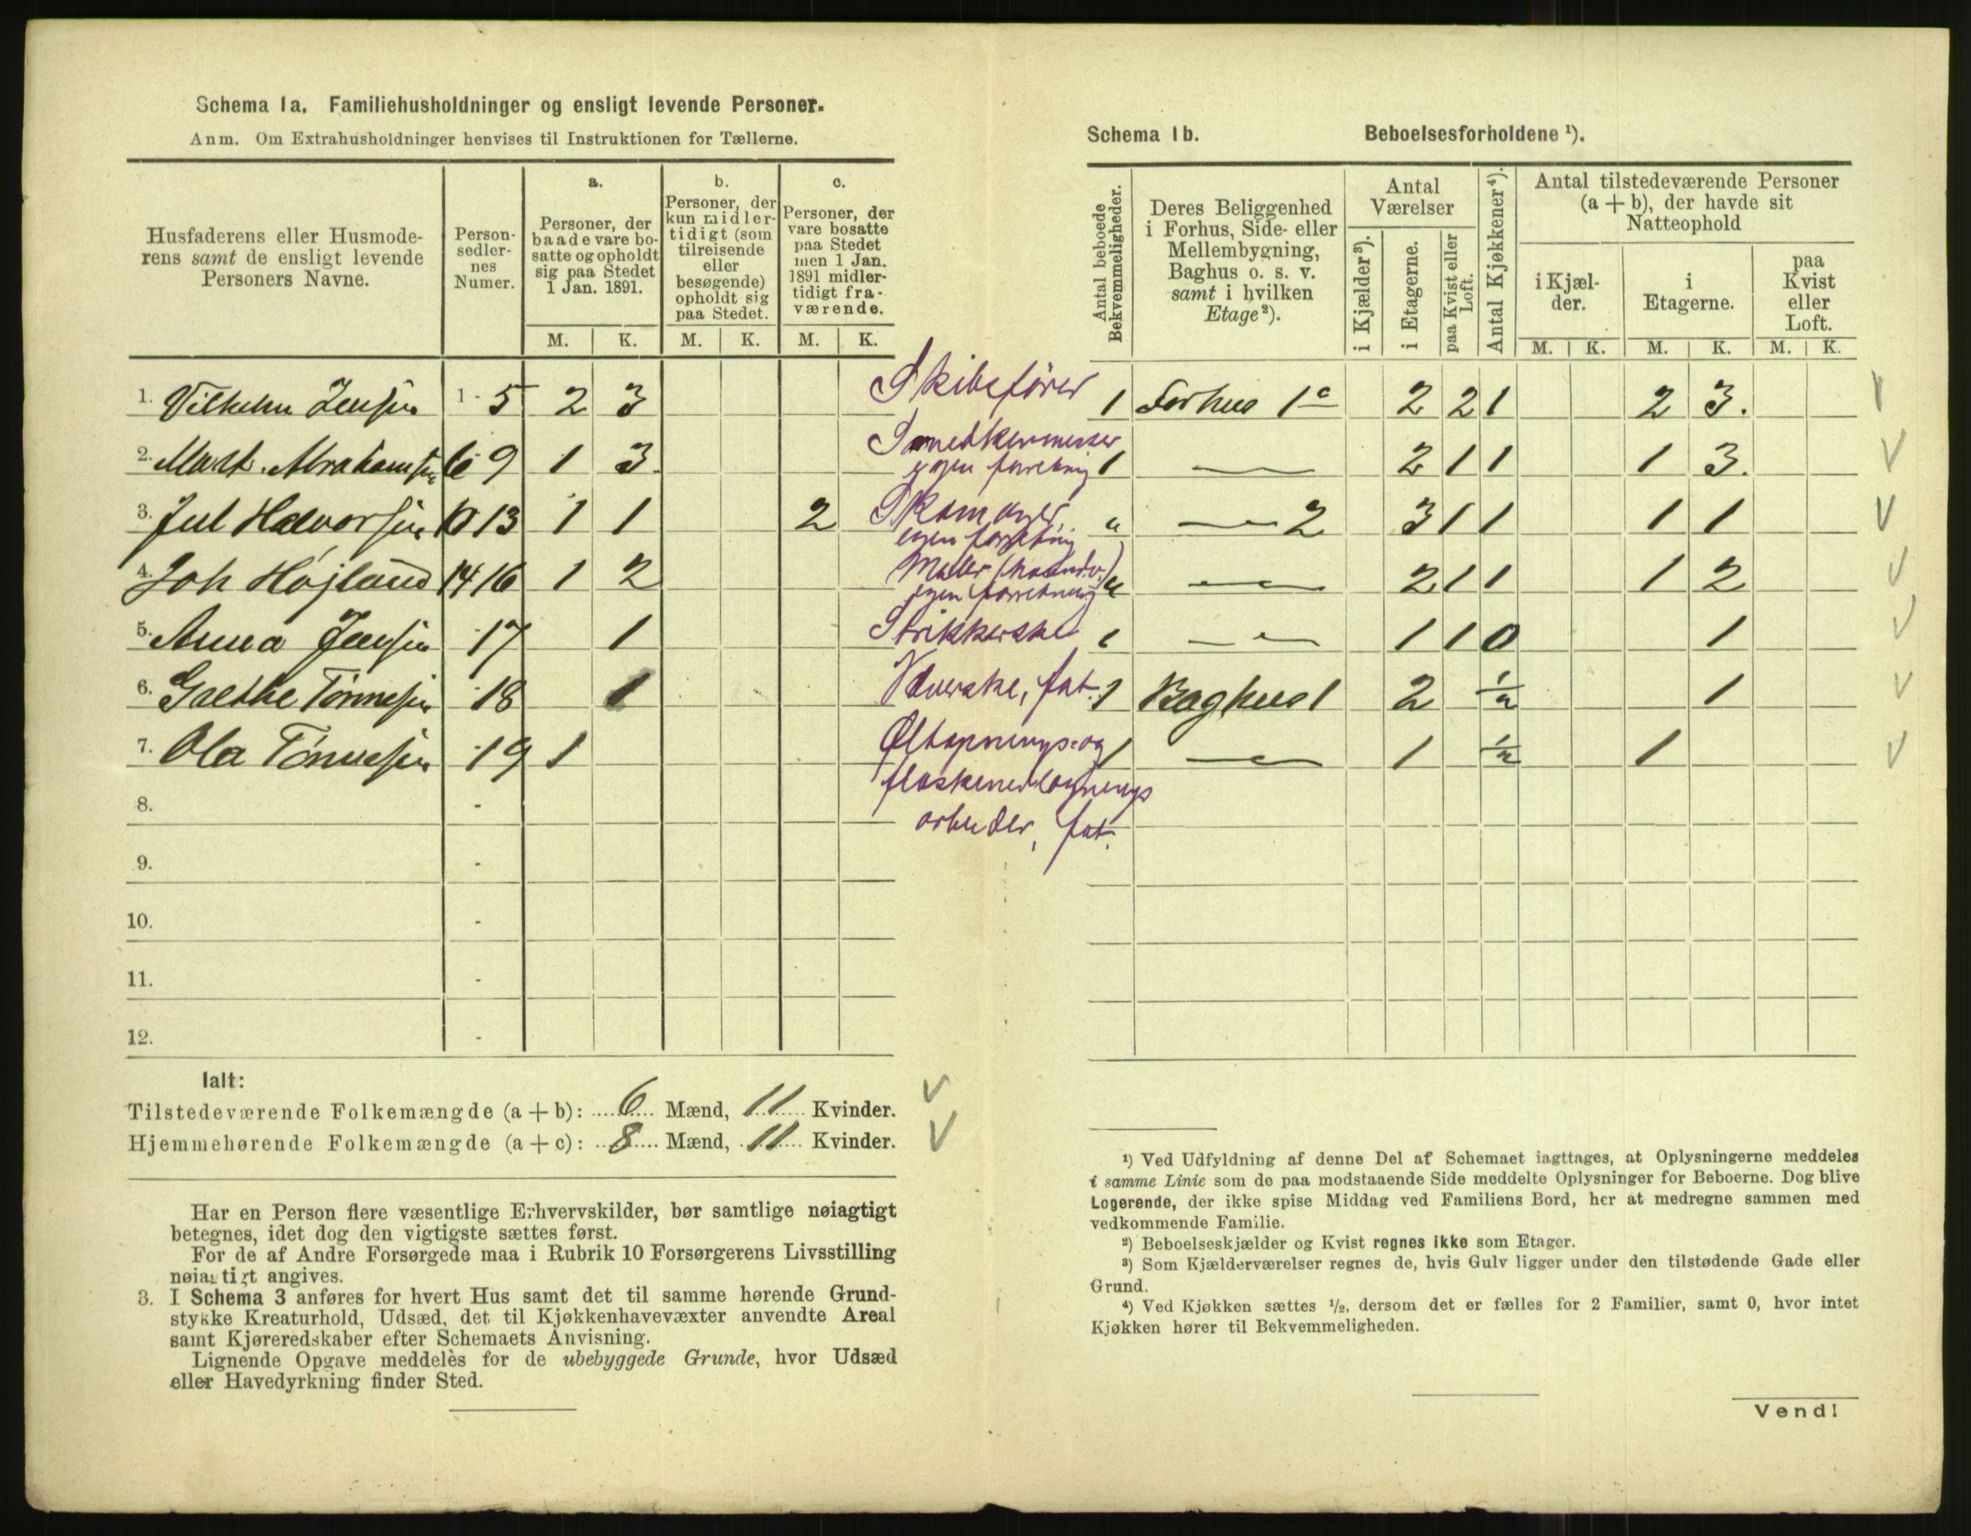 Schema 1a. Familiehusholdninger og ensligt levende Personer.
Anm. Om Extrahusholdninger henvises til Instruktionen for Tællerne.
Husfaderens eller Husmoderens samt de ensligt levende Personers Navne.
Personsedlernes Numer.
a.
Personer, der baade vare bosatte og opholdt sig paa Stedet 1 Jan. 1891.
b.
Personer, der kun midlertidigt (som tilreisende eller besøgende) opholdt sig paa Stedet.
c.
Personer, der vare bosatte paa Stedet men 1 Jan. 1891 midlertidigt fraværende.
M. K. M. K. M. K.
1. Vilhelm Jensen 1 - 5 2 3 Skibsfører
2. Abrahamsen 6 9 1 3 egen forretning
3. Jul Halvorsen 10 13 1 1 2 Skomager, egen forretning
4. Joh Højland 14 16 1 2 Maler (haandv.) egen forretning
5. Anna Jensen 17 1 Strikkerske
6. Grethe Tønnesen 18 1 Væverske, fat.
7. Ola Tønnesen 19 1 Øltapnings- og
flaskenedlægnings
arbeider, fat.
8. -
9. -
10. -
11. -
12. -
Ialt:
Tilstedeværende Folkemængde (a + b): 6 Mænd, 11 Kvinder.
Hjemmehørende Folkemængde (a + c): 8 Mænd, 11 Kvinder.
Har en Person flere væsentlige Erhvervskilder, bør samtlige nøiagtigt
betegnes, idet dog den vigtigste sættes først.
For de af Andre Forsørgede maa i Rubrik 10 Forsørgerens Livsstilling
nøiagtigt angives.
3. I Schema 3 anføres for hvert Hus samt det til samme hørende Grund-
stykke Kreaturhold, Udsæd, det til Kjøkkenhavevæxter anvendte Areal
samt Kjøreredskaber efter Schemaets Anvisning.
Lignende Opgave meddeles for de ubebyggede Grunde, hvor Udsæd
eller Havedyrkning finder Sted.
Schema 1b. Beboelsesforholdene ¹).
Antal beboede Bekvemmeligheder.
Deres Beliggenhed i Forhus, Side- eller Mellembygning, Baghus o. s. v. samt i hvilken Etage ²).
Antal Værelser
i Kjælder ³).
i Etagerne.
paa Kvist eller Loft.
Antal Kjøkkener ⁴).
Antal tilstedeværende Personer (a + b), der havde sit Natteophold
i Kjælder.
i Etagerne.
paa Kvist eller Loft.
M. K. M. K. M. K.
1 Forhus 1e 2 2 1 2 3.
1 — 2 1 1 1 3.
" — 2 3 1 1 1 1
" — 2 1 1 1 2
1 — 1 1 0 1
1 Baghus 1 2 ½ 1
1 — 1 ½ 1
¹) Ved Udfyldning af denne Del af Schemaet iagttages, at Oplysningerne meddeles
i samme Linie som de paa modstaaende Side meddelte Oplysninger for Beboerne. Dog blive
Logerende, der ikke spise Middag ved Familiens Bord, her at medregne sammen med
vedkommende Familie.
²) Beboelseskjælder og Kvist regnes ikke som Etager.
³) Som Kjælderværelser regnes de, hvis Gulv ligger under den tilstødende Gade eller
Grund.
⁴) Ved Kjøkken sættes ½, dersom det er fælles for 2 Familier, samt 0, hvor intet
Kjøkken hører til Bekvemmeligheden.
Vend!